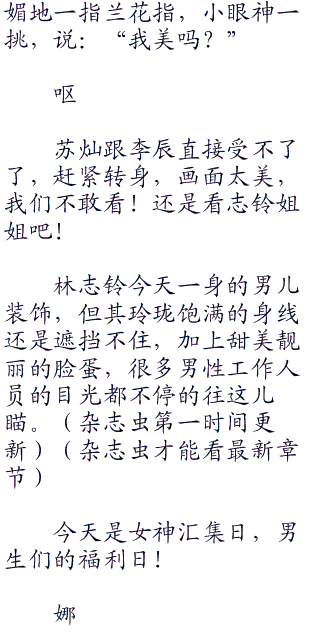 媚地一指兰花指，小眼神一
挑，说：“我美吗？”
呕
苏灿跟李辰直接受不了
了，赶紧转身，画面太美，
我们不敢看！还是看志铃姐
姐吧！
林志铃今天一身的男儿
装饰，但其玲珑饱满的身线
还是遮挡不住，加上甜美靓
丽的脸蛋，很多男性工作人
员的目光都不停的往这儿
瞄。（杂志虫第一时间更
新）（杂志虫才能看最新章
节）
今天是女神汇集日，男
生们的福利日！
娜